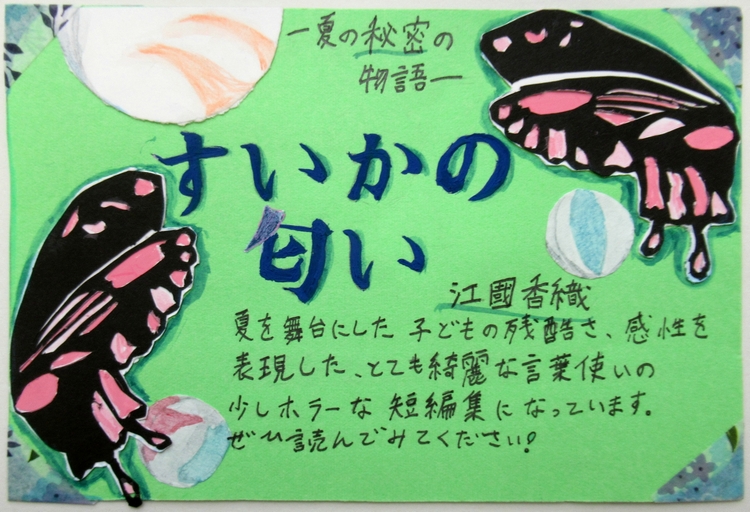 ―夏の秘密の
物語―
すいかの
匂い
江國香織
夏を舞台にした子どもの残酷さ、感性を
表現した、とても綺麗な言葉使いの
少しホラーな短編集になっています。
ぜひ読んでみてください!